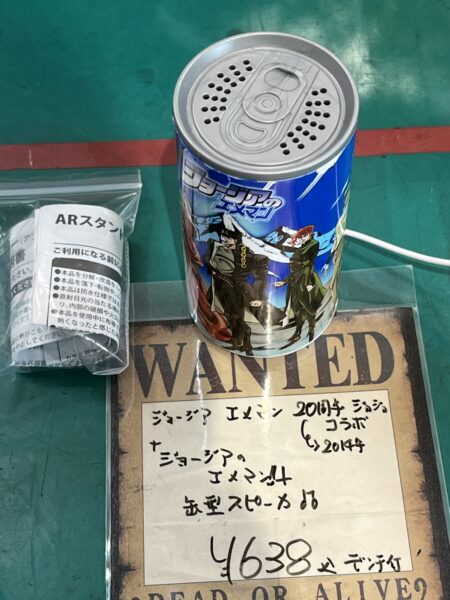 ジョージアの
エメマン
ARスタン
ご利用になる前に
●本品を分解・改造
●本品を落下・転倒
●本品は防水仕様では
●直射日光の当たる場
り、内部の破損や
●本品を使用中に
熱くなったと感じ
WANTED
ジョージア エメマン 20周年 ジョジョ
コラボ
→2014年
+
ジョージアの
エメマン!!
缶型スピーカー
¥638
DEAD OR ALIVE?